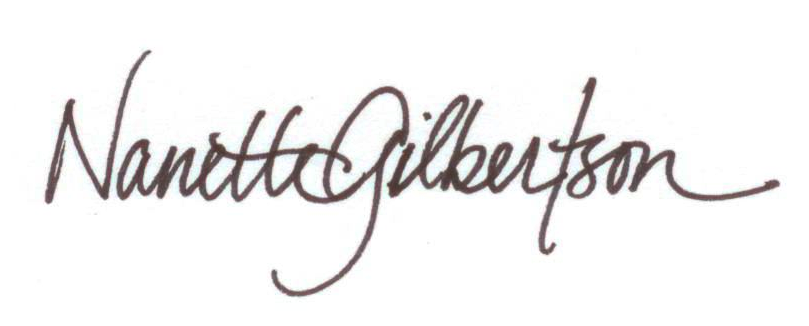 Nanette Gilbertson